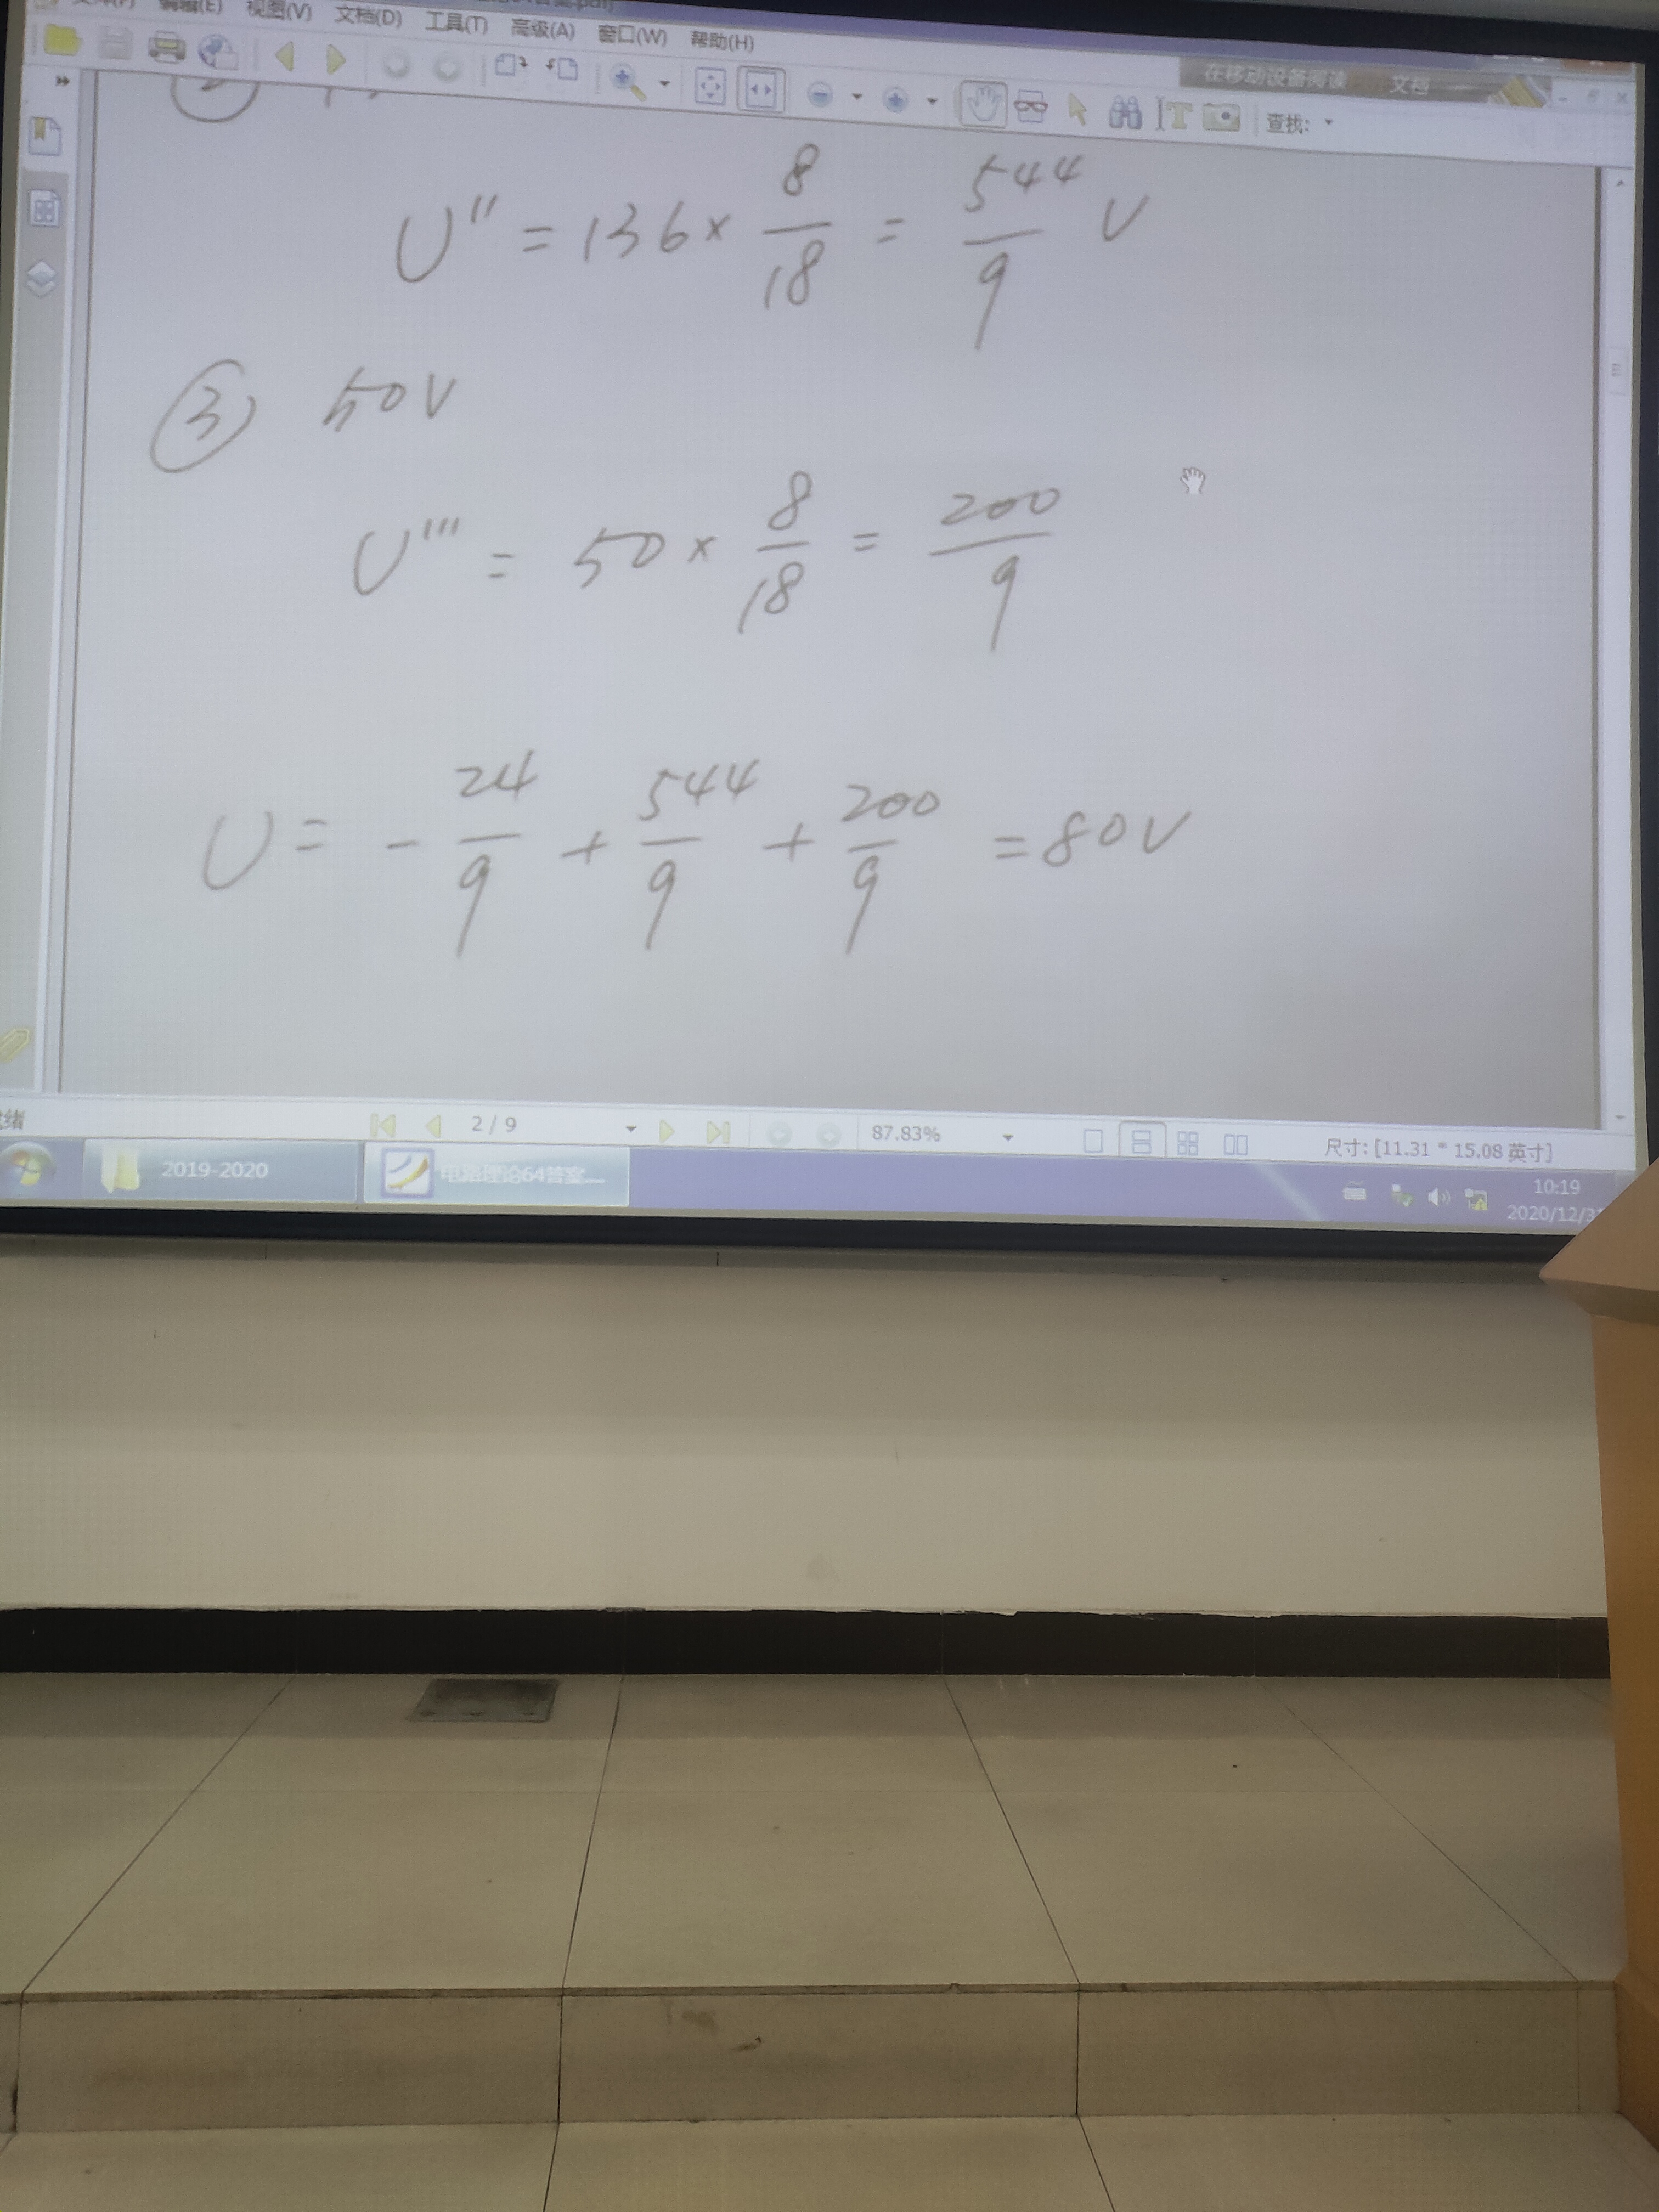 编辑(E) 视图(V) 文档(D) 工具(T) 高级(A) 窗口(W) 帮助(H)
在移动设备阅读 文档
查找:
U'' = 136 × 8/18 = 544/9 V
③ 50V
U''' = 50 × 8/18 = 200/9
U = - 24/9 + 544/9 + 200/9 = 80V
2 / 9
87.83%
尺寸: [11.31 * 15.08 英寸]
2019-2020
电路理论64答案....
10:19
2020/12/31